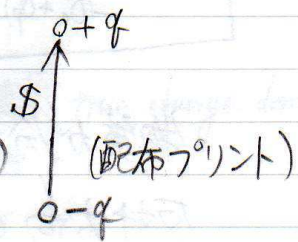 +q
$
(配布プリント)
-q